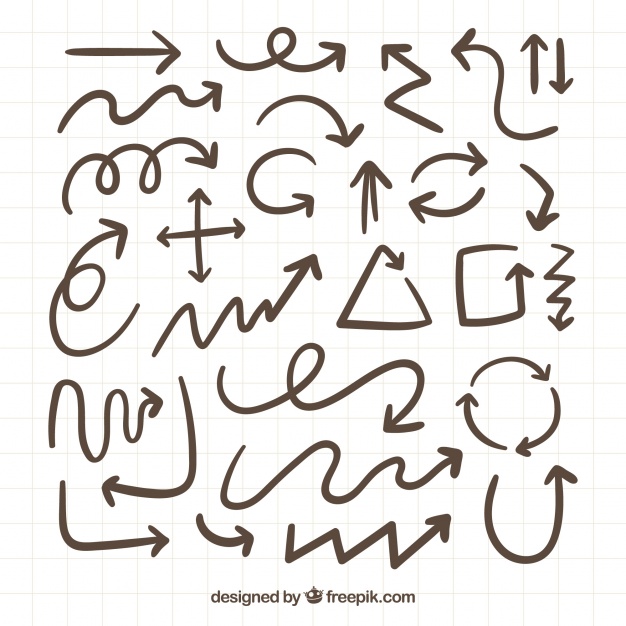 designed by freepik.com